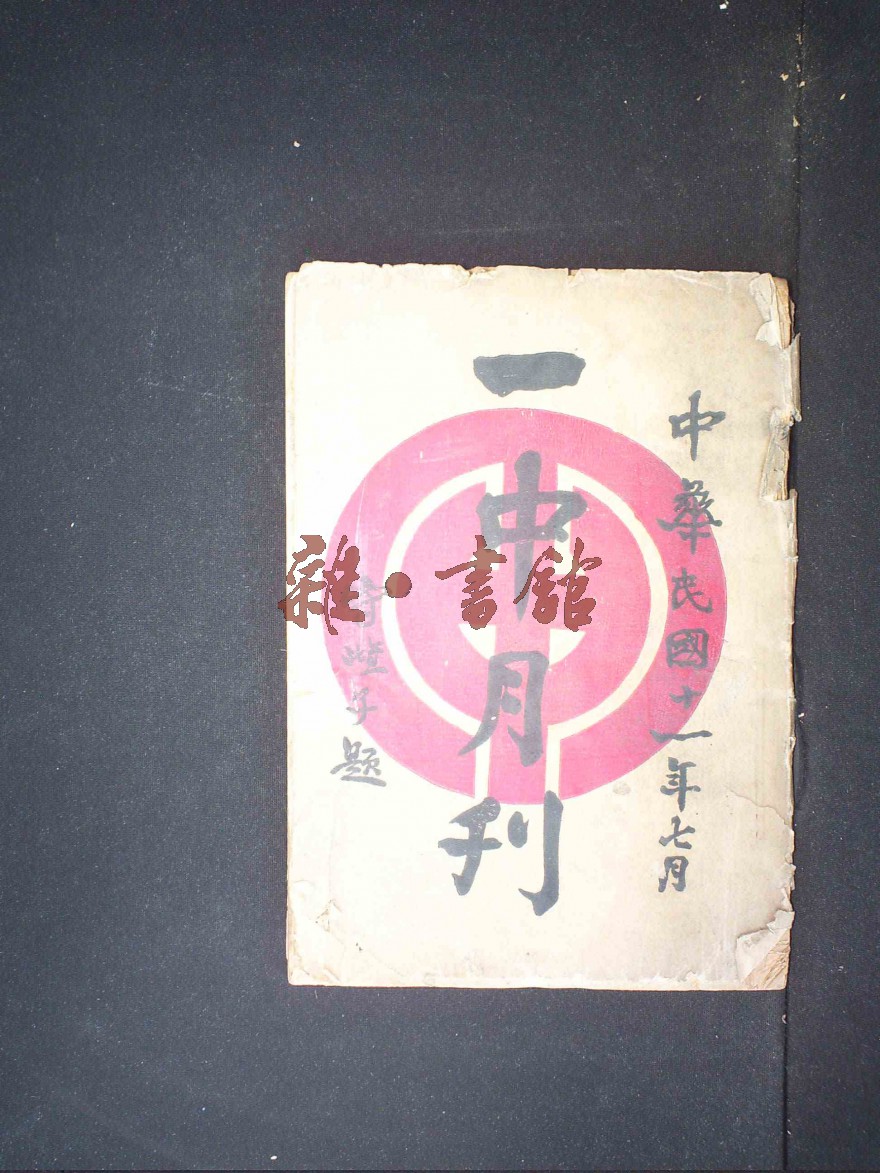 中華民國十一年七月
一中月刊
題
雜·書館